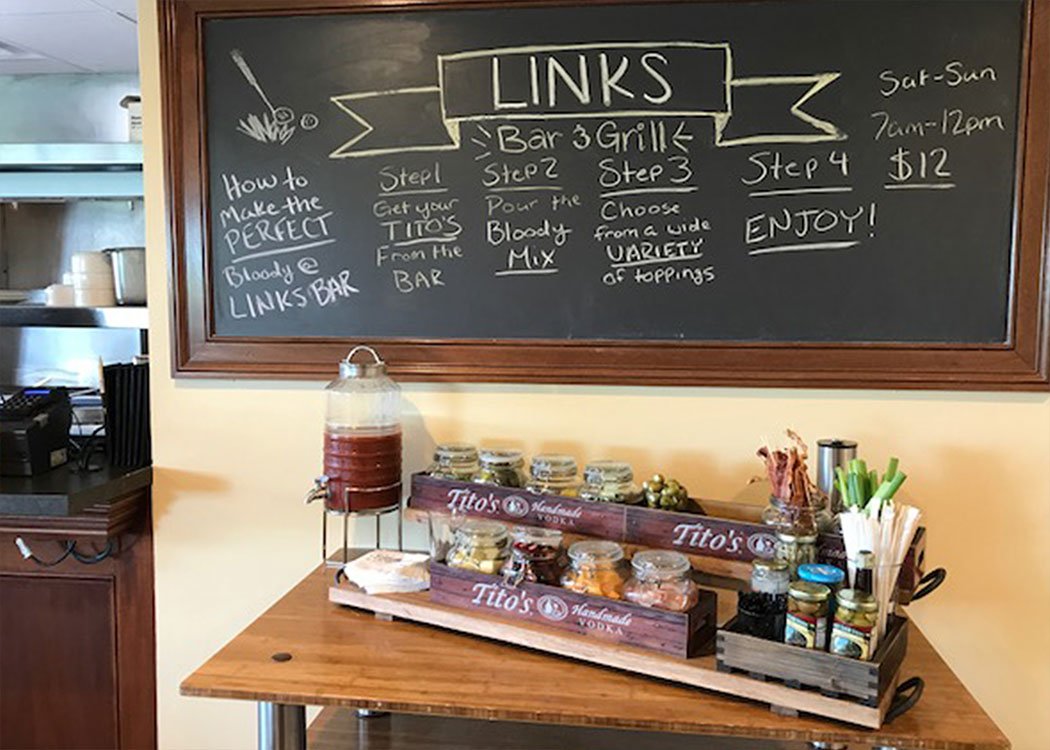 LINKS
Bar & Grill
Sat-Sun
7am-12pm
$12
How to
Make the
PERFECT
Bloody @
LINKS BAR
Step 1
Get your
TITO'S
From the
BAR
Step 2
Pour the
Bloody
Mix
Step 3
Choose
from a wide
VARIETY
of toppings
Step 4
ENJOY!
Tito's Handmade
VODKA
Tito's
Tito's Handmade
VODKA